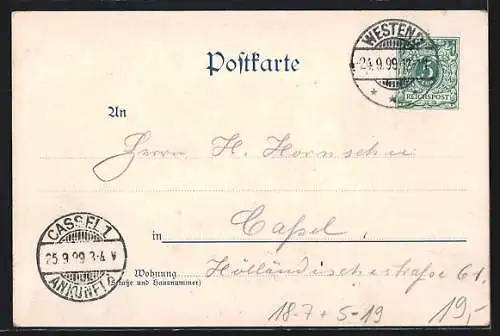 WESTEND
24.9.99.12-1N
5
REICHSPOST
Postkarte
An
Herrn H. Hornschu
in Cassel,
CASSEL 1
25.9.99.3-4 V
ANKUNFT
Wohnung
(Straße und Hausnummer)
Holländischestraße 61.
18-7 + 5-19 19,-